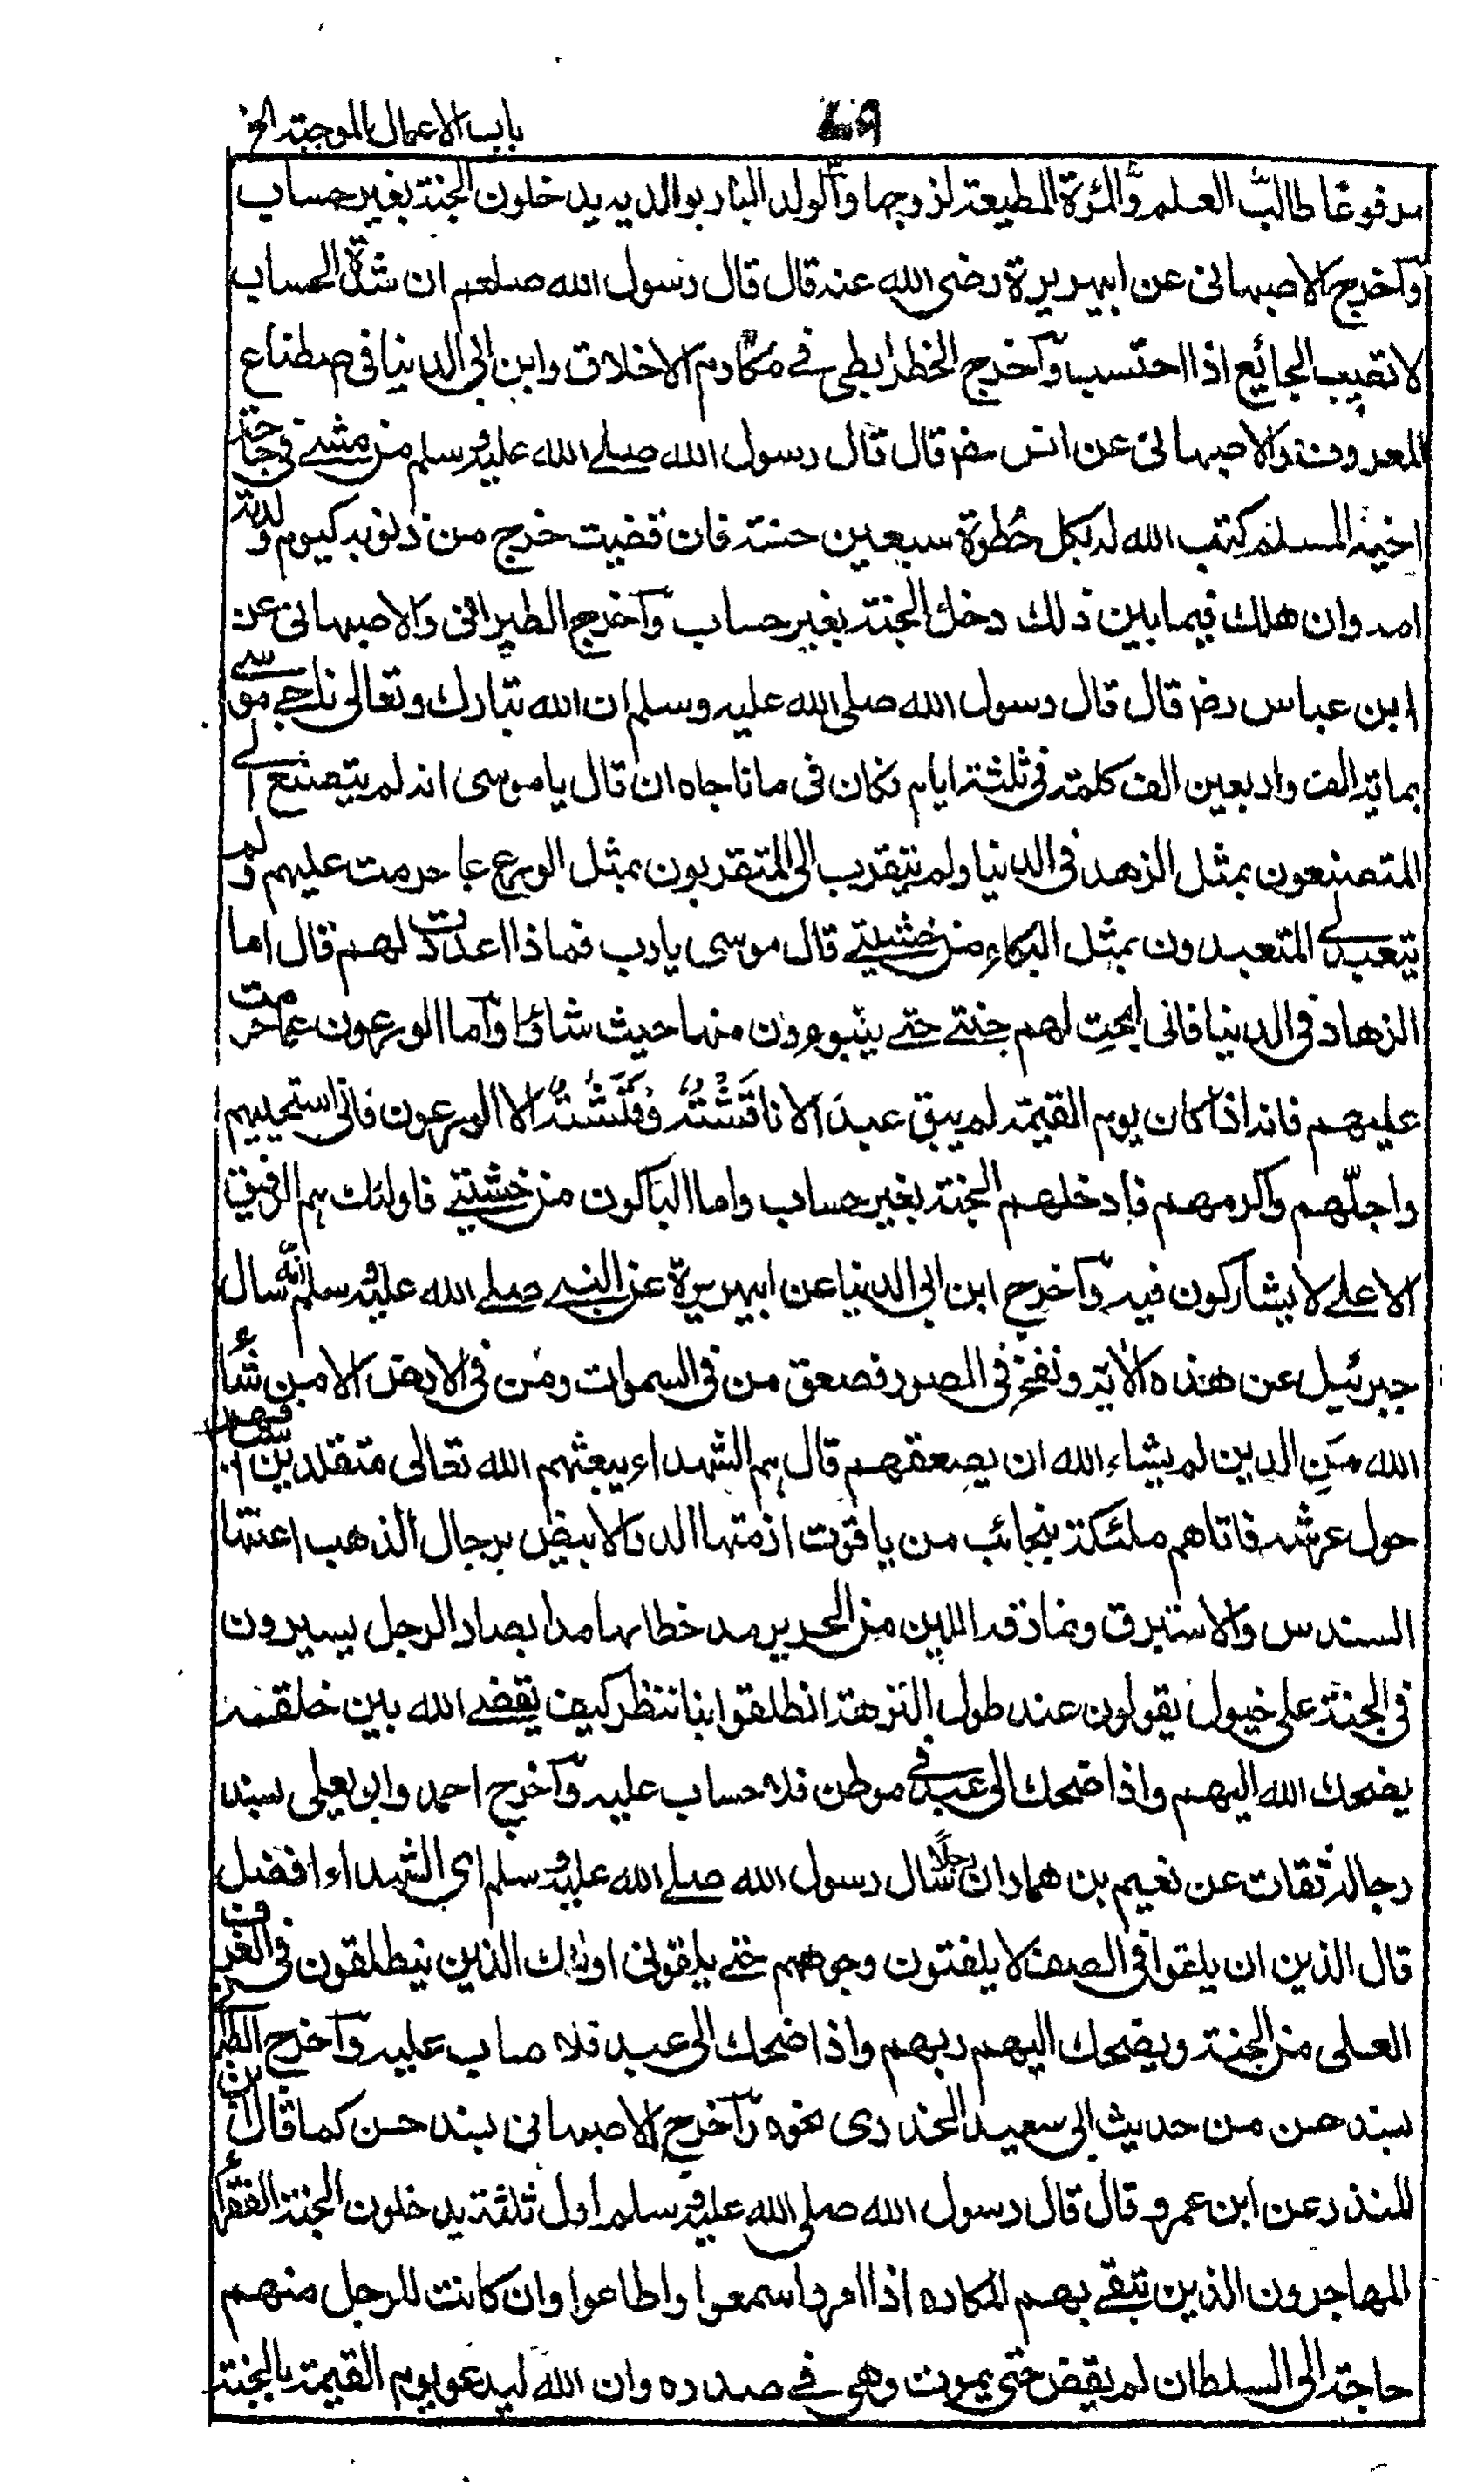 باب الاعمال الموجبة الخ
مرفوعًا طالبُ العلم والمرٔة المطيعة لزوجها والولد البار بوالديه يدخلون الجنة بغير حساب
وآخرج الاصبهانى عن ابيهريرة رضى الله عنه قال قال رسول الله صلعم ان شدة الحساب
لا تصيب الجائع اذا احتسب وآخرج الخطرابطى فے مكارم الاخلاق وابن ابى الدنيا فى صطناع
المعروف والاصبهانى عن انس رضـ قال قال رسول الله صلے الله عليه وسلم من مشے فى حاجة
اخيه المسلم كتب الله له بكل خُطوة سبعين حسنة فان قضيت خرج من ذنوبه كيوم ولدته
امه وان هلك فيما بين ذلك دخل الجنة بغير حساب وآخرج الطبرانى والاصبهانى عن
ابن عباس رضـ قال قال رسول الله صلى الله عليه وسلم ان الله تبارك وتعالى ناجے موسے
بماية الف واربعين الف كلمة فى ثلثة ايام فكان فى ما ناجاه ان قال يا موسى انه لم يتصنع الے
المتصنعون بمثل الزهد فى الدنيا ولم يتقرب الى المتقربون بمثل الورع عما حرمت عليهم ولم
يتعبد لے المتعبدون بمثل البكاء من خشيتے قال موسى يا رب فماذا اعددت لهم قال اما
الزهاد فى الدنيا فانى ابحت لهم جنتے حتے يتبوءون منها حيث شاؤا وآما الورعون عما حرمت
عليهم فانه اذا كان يوم القيمة لم يبق عبد الا ناقشته وفتشته الا الورعون فانى استحييهم
واجلّهم واكرمهم فادخلهم الجنة بغير حساب واما الباكون من خشيتے فاولئك هم الرفيق
الاعلے لا يشاركون فيه وآخرج ابن ابى الدنيا عن ابيهريرة عن النبے صلے الله عليه وسلم انه سال
جبرئيل عن هذه الآية ونفخ فى الصور فصعق من فى السموات ومن فى الارض الا من شاء
الله من الذين لم يشاء الله ان يصعقهم قال هم الشهداء يبعثهم الله تعالى متقلدين اسيافهم
حول عرشه فاتاهم ملئكة بنجائب من ياقوت ازمتها الدر الابيض برحال الذهب اعنتها
السندس والاستبرق ونمارقه اللين من الحرير مد خطاها مد ابصار الرجل يسيرون
فى الجنة على خيول يقولون عند طول النزهة انطلقوا بنا ننظر كيف يقضے الله بين خلقه
يضحك الله اليهم واذا ضحك الى عبد فے موطن فلا حساب عليه وآخرج احمد وابن يعلى بسند
رجاله ثقات عن نعيم بن همار ان رجلًا سال رسول الله صلے الله عليه وسلم اى الشهداء افضل
قال الذين ان يلقوا فى الصف لا يلفتون وجوههم حتے يلقونى اولئك الذين ينطلقون فى الغرف
العلى من الجنة ويضحك اليهم ربهم واذا ضحك الى عبد فلا حساب عليه وآخرج
بسند حسن من حديث ابى سعيد الخدرى نحوه وآخرج الاصبهانى بسند حسن كما قال ابن
المنذر عن ابن عمرو قال قال رسول الله صلى الله عليه وسلم اول ثلثة يدخلون الجنة الفقراء
المهاجرون الذين تتقے بهم المكاره اذا امروا سمعوا واطاعوا وان كانت للرجل منهم
حاجة الى السلطان لم يقض حتى يموت وهى فے صدره وان الله ليدعو يوم القيمة بالجنة